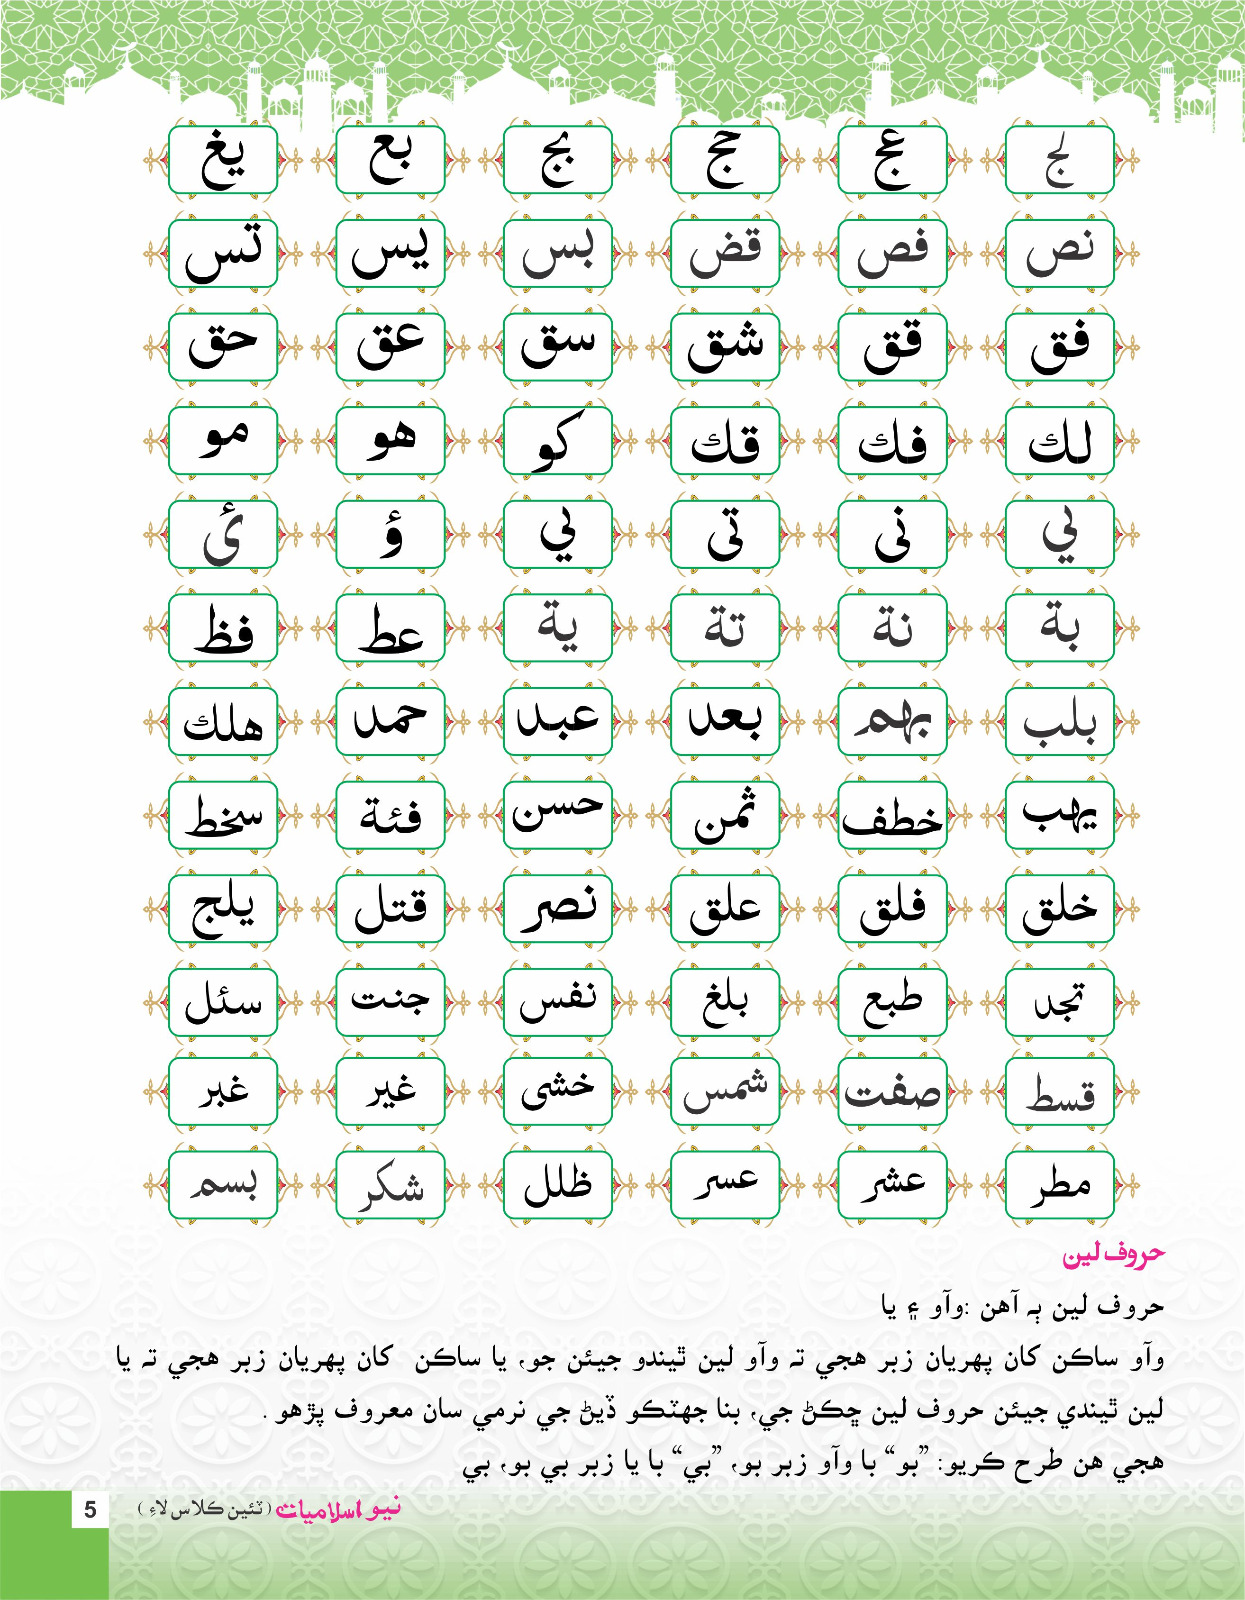 لج عج حج بج بع يغ
نص فص قض بس يس تس
فق قق شق سق عق حق
لك فك قك كو هو مو
لي ني تي بي ؤ ئ
بة نة تة ية عط فظ
بلب بهم بعد عبد حمد هلك
يهب خطف ثمن حسن فئة سخط
خلق فلق علق نصر قتل يلج
تجد طبع بلغ نفس جنت سئل
قسط صفت شمس خشى غير غبر
مطر عشر عسر ظلل شكر بسم
حروف لين
حروف لين ٻه آهن :وآو ۽ يا
وآو ساڪن کان پهريان زبر هجي ته وآو لين ٿيندو جيئن جو، يا ساڪن کان پهريان زبر هجي ته يا
لين ٿيندي جيئن حروف لين ڇڪڻ جي، بنا جهٽڪو ڏيڻ جي نرمي سان معروف پڙهو .
هجي هن طرح ڪريو: ”بو“ با وآو زبر بو، ”بي“ با يا زبر بي بو، بي
نيو اسلاميات (ٽئين ڪلاس لاءِ ) 5